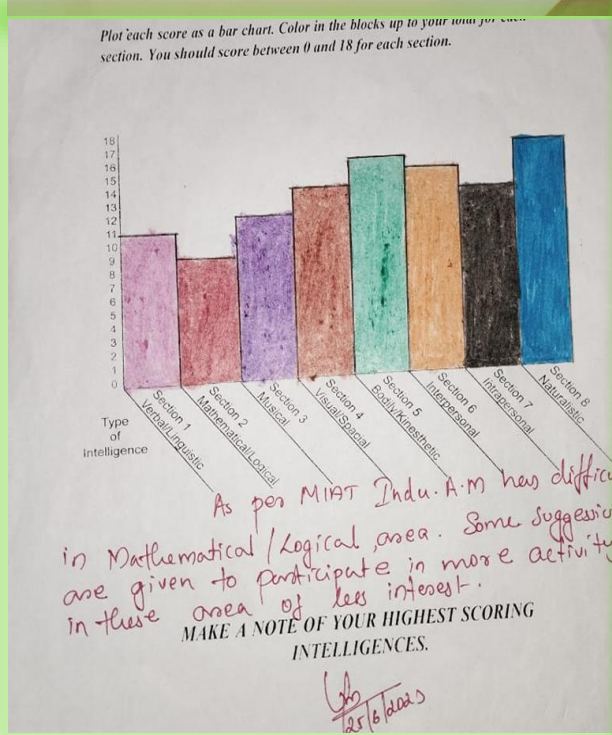 Plot each score as a bar chart. Color in the blocks up to your total for each
section. You should score between 0 and 18 for each section.
18
17
16
15
14
13
12
11
10
9
8
7
6
5
4
3
2
1
0
Type
of
Intelligence
Section 1
Verbal/Linguistic
Section 2
Mathematical/Logical
Section 3
Musical
Section 4
Visual/Spacial
Section 5
Bodily/Kinesthetic
Section 6
Interpersonal
Section 7
Intrapersonal
Section 8
Naturalistic
As per MIAT Indu.A.M has diffic
in Mathematical/Logical area. Some Suggessio
are given to participate in more activity
in these area of less interest.
MAKE A NOTE OF YOUR HIGHEST SCORING
INTELLIGENCES.
25/6/2023